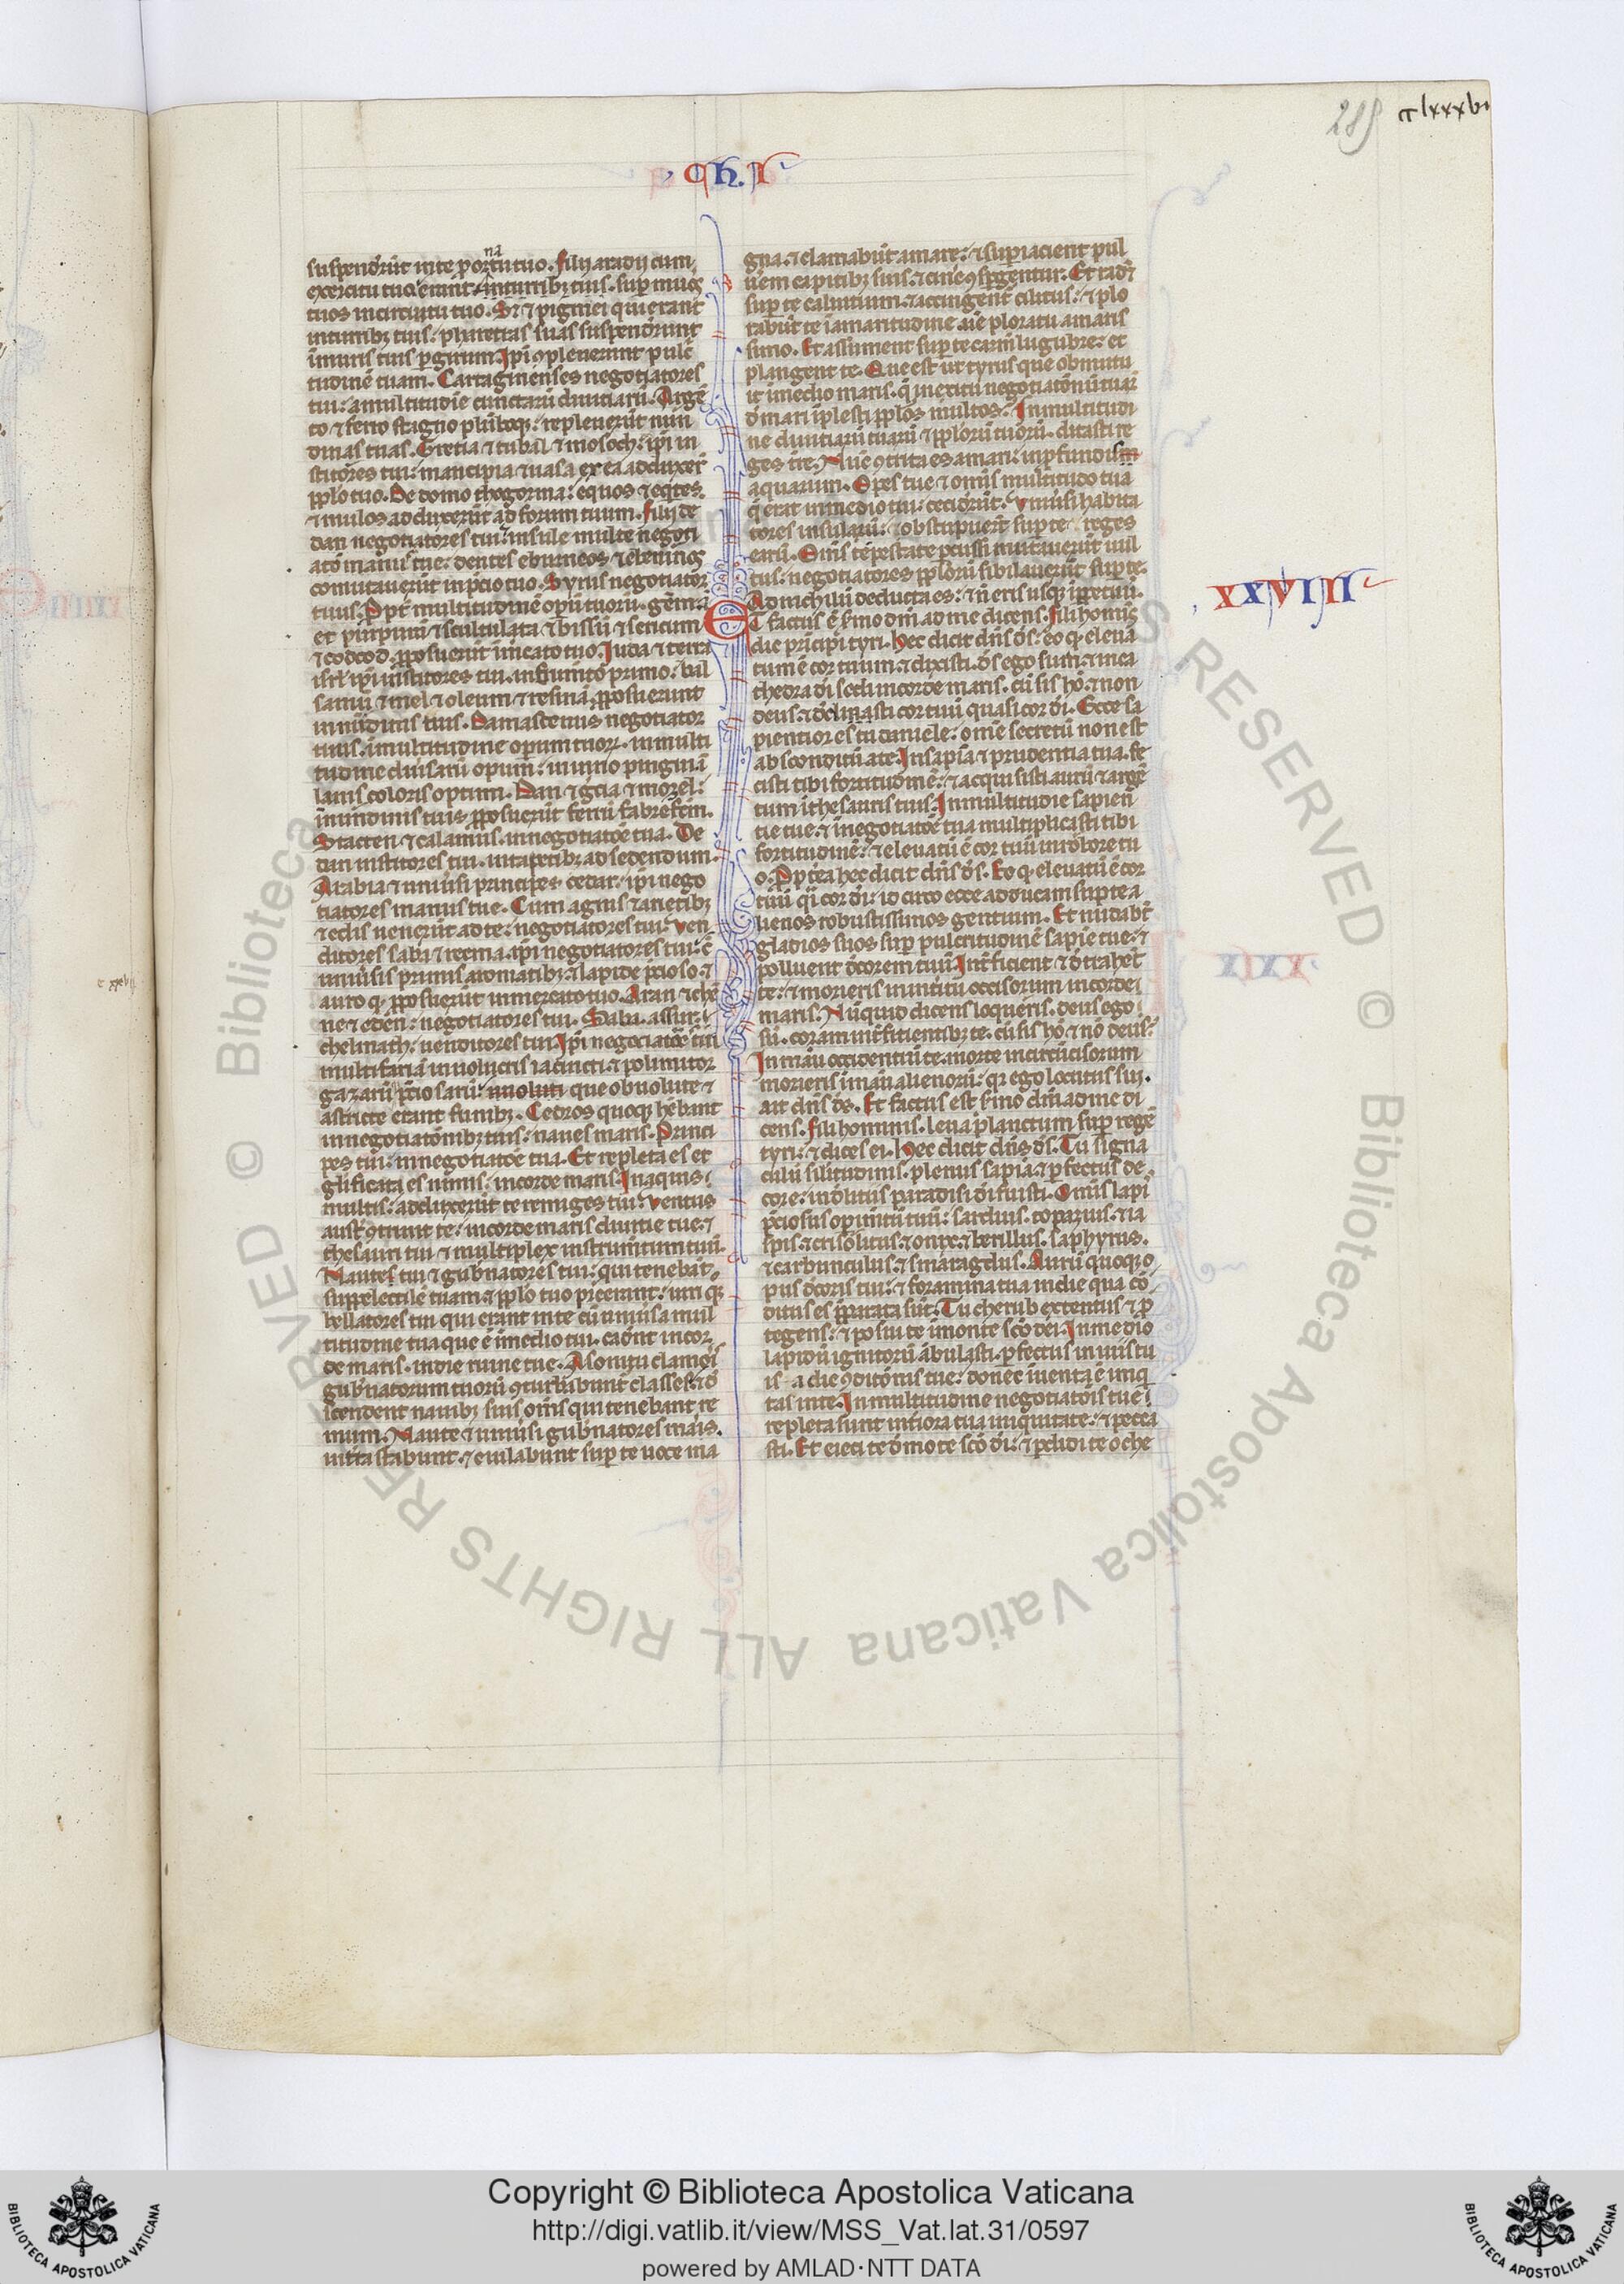 289
clxxxvi
ch.I
suspenderūt inte portu tuo. filij aradij cum
na
exercitu tuo erant in turribꝫ tuis. sup muros
tuos incircuitu tuo. Sꝫ ⁊ pigmei qui erant
inturribꝫ tuis: pharetras suas suspenderunt
ī muris tuis pergirum. Ipi ꝯpleuerunt pulc
tudinē tuam. Cartaginenses negotiatores
tui: a multitudīe cunctarū diuitiarū. Argē
to ⁊ ferro stagno plūboqꝫ: repleuerūt nun
dinas tuas. Grecia ⁊ tubal ⁊ mosoch: ipi in
stitores tui: mancipia ⁊ uasa
pplo tuo. De domo thogorma: equos ⁊ eqites.
⁊ mulos adduxerūt ad forum tuum. filij de
dan negotiatores tui: insule multe negoti
atō manū tue: dentes eburneos
cōmutauerūt in pcio tuo. Syrus negotiator
tuus. Ppt multitudinē opū tuorū. gēmā
et purpurā ⁊ scutulata ⁊ bissū ⁊ sericum
⁊ codcod pposuerūt ī mcato tuo. Iuda ⁊ terra
isrl ipi institores tui. in frumto primo: bal
samū ⁊ mel ⁊ oleum ⁊ resinā pposuerunt
in nūdinis tuis. Damascenus negotiator
tuus. ī multitudine operum tuorꝝ. in multi
tudine diuisarū opum: in uino pingui. ī
lanis coloris optimi. Dan ⁊ gcia ⁊ mozel:
ī nundinis tuis pposuerūt ferrū fabrefctm.
Stacten ⁊ calamus. in negotiatōe tua. De
dan institores tui. in tapetibꝫ ad sedendum.
Arabia ⁊ uniūsi principes cedar: ipi nego
tiatores manus tue. Cum agnis ⁊ arietibꝫ
⁊ edis uenerūt ad te: negotiatores tui. Ven
ditores saba ⁊ reema. ipi negotiatores tui. ī
uniūsis primis aromatibꝫ: ⁊ lapide pcioso. ⁊
auro qꝫ pposuerūt in mercato tuo. Aran ⁊ che
ne ⁊ eden: negotiatores tui. Saba. assur. ⁊
chelmath: uenditores tui. Ipi negociatōes tui
multifariā inuolucris iacincti. ⁊ polimitoꝝ
gazarū pciosarū: inuoluti que obuolute ⁊
astricte erant funibꝫ. Cedros quoqꝫ hebant
in negotiatōnibꝫ tuis: naues maris. Princi
pes tui: in negotiatōe tua. Et repleta es et
glificata es nimis: in corde maris. In aquis
multis: adduxerūt te remiges tui. Ventus
aust ꝯtriuit te: in corde maris diuitie tue. ⁊
thesauri tui ⁊ multiplex instrumtum tuū.
Naute tui ⁊ gubnatores tui: qui tenebāt
suppelectilē tuam. ⁊ pplo tuo preerant: uiri qꝫ
bellatores tui qui erant in te cū uniūsa mul
titudine tua que ē ī medio tui. cadent in cor
de maris. in die ruine tue. A sonitu clamoris
gubnatorum tuorū ꝯturbabunt classes. ⁊ d
scendent nauibꝫ suis. oms qui tenebant re
mum. Naute ⁊ uniūsi gubnatores maris.
in tra stabunt. ⁊ eiulabunt sup te uoce ma
gna. ⁊ clamabūt amare: ⁊ supiacient pul
uem capitibꝫ suis. ⁊ cine ꝯspgentur. Et radēt
sup te caluitium. ⁊ accingent cilitiis: ⁊ plo
rabūt te ī amaritudine aīe ploratu amaris
simo. Et assument sup te carm lugubre: et
plangent te. Que est ut tyrus que obmutu
it ī medio maris. q in exitu negotiatōnū tuaꝝ
d mari īplesti pplos multos. In multitudi
ne diuitiarū tuarū ⁊ pplorū tuorū. ditasti re
ges tre. Nūc ꝯtrita es a mari: in pfundis
aquarum. Opes tue ⁊ omis multitudo tua
q erat in medio tui: ceciderūt. Vniūsi habita
tores insularū: obstupuerūt sup te. ⁊ reges
earū. Oms tēpestate pcussi mutauerūt uul
tus: negotiatores pplorū sibilauerūt sup te.
Ad nichilū deducta es: ⁊ n eris usqꝫ ī ppetuū.
XXVIII
Et factus ē smo dni ad me dicens. fili hois
dic principi tyri. Hec dicit dns ds. eo qꝫ eleua
tum ē cor tuum. ⁊ dixisti. ds ego sum. ⁊ in ca
thedra di sedi in corde maris. cū sis ho. ⁊ non
deus. ⁊ cor tuū quasi cor di. Ecce sa
pientior es tu daniele: omē secretū non est
absconditū a te. In sapīa ⁊ prudentia tua. fe
cisti tibi fortitudinē: ⁊ acquisisti aurū ⁊ argē
tum ī thesauris tuis. In multitudīe sapien
tie tue. ⁊ ī negotiatōe tua multiplicasti tibi
fortitudinē: ⁊ eleuatū ē cor tuū in robore tu
o. Pptea hec dicit dns ds. Eo qꝫ eleuatū ē cor
tuū qi cor di: idcirco ecce adducam sup te a
lienos robustissimos gentium. Et nudabt
gladios suos sup pulcritudinē sapie tue: ⁊
polluent decorem tuū. Intficient ⁊ detrahet
te: ⁊ morieris in intitu occisorum in corde
maris. Nūquid dicens loqueris. deus ego
sū. coram intficientibꝫ te. cū sis ho ⁊ nō deus:
In manu occidentiū te. morte incircūcisorum
morieris ī manu alienorū: qr ego locutus sū.
ait dns ds. Et factus est smo dni ad me di
cens. fili hominis. leua planctum sup regē
tyri: ⁊ dices ei. Hec dicit dns ds. Tu signa
culū silitudinis. plenus sapia. ⁊ pfectus de
core: in delitiis paradisi di fuisti. Omis lapis
pciosus opimtū tuū: sardius. topazius. ⁊ ia
spis. ⁊ crisolitus. ⁊ onix. ⁊ berillus. saphyrus.
⁊ carbunculus. ⁊ smaragdus. Aurū quoqꝫ o
pus decoris tui: ⁊ foramina tua in die qua cō
ditus es pparata sūt. Tu cherub extentus ⁊ p
tegens: ⁊ posui te ī monte sco dei. In medio
lapidū ignitorū ābulasti. pfectus in uiis tu
is a die ꝯditōnis tue: donec inuenta ē iniq
tas in te. In multitudine negotiatōis tue
repleta sunt intiora tua iniquitate: ⁊ pecca
sti. Et eieci te de mote sco di: ⁊ pdidi te o che
Copyright © Biblioteca Apostolica Vaticana
http://digi.vatlib.it/view/MSS_Vat.lat.31/0597
powered by AMLAD·NTT DATA
BIBLIOTECA APOSTOLICA VATICANA
BIBLIOTECA APOSTOLICA VATICANA
© Biblioteca Apostolica Vaticana ALL RIGHTS RESERVED